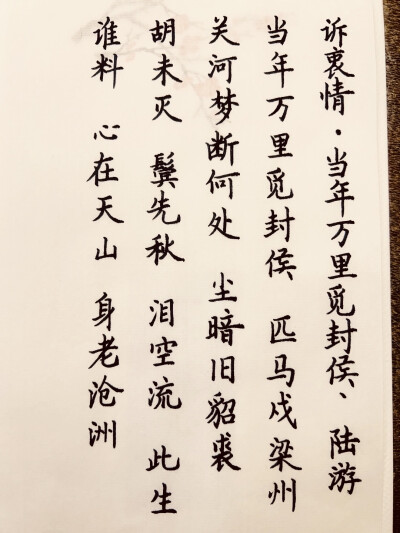 诉衷情·当年万里觅封侯、陆游
当年万里觅封侯 匹马戍梁州
关河梦断何处 尘暗旧貂裘
胡未灭 鬓先秋 泪空流 此生
谁料 心在天山 身老沧洲